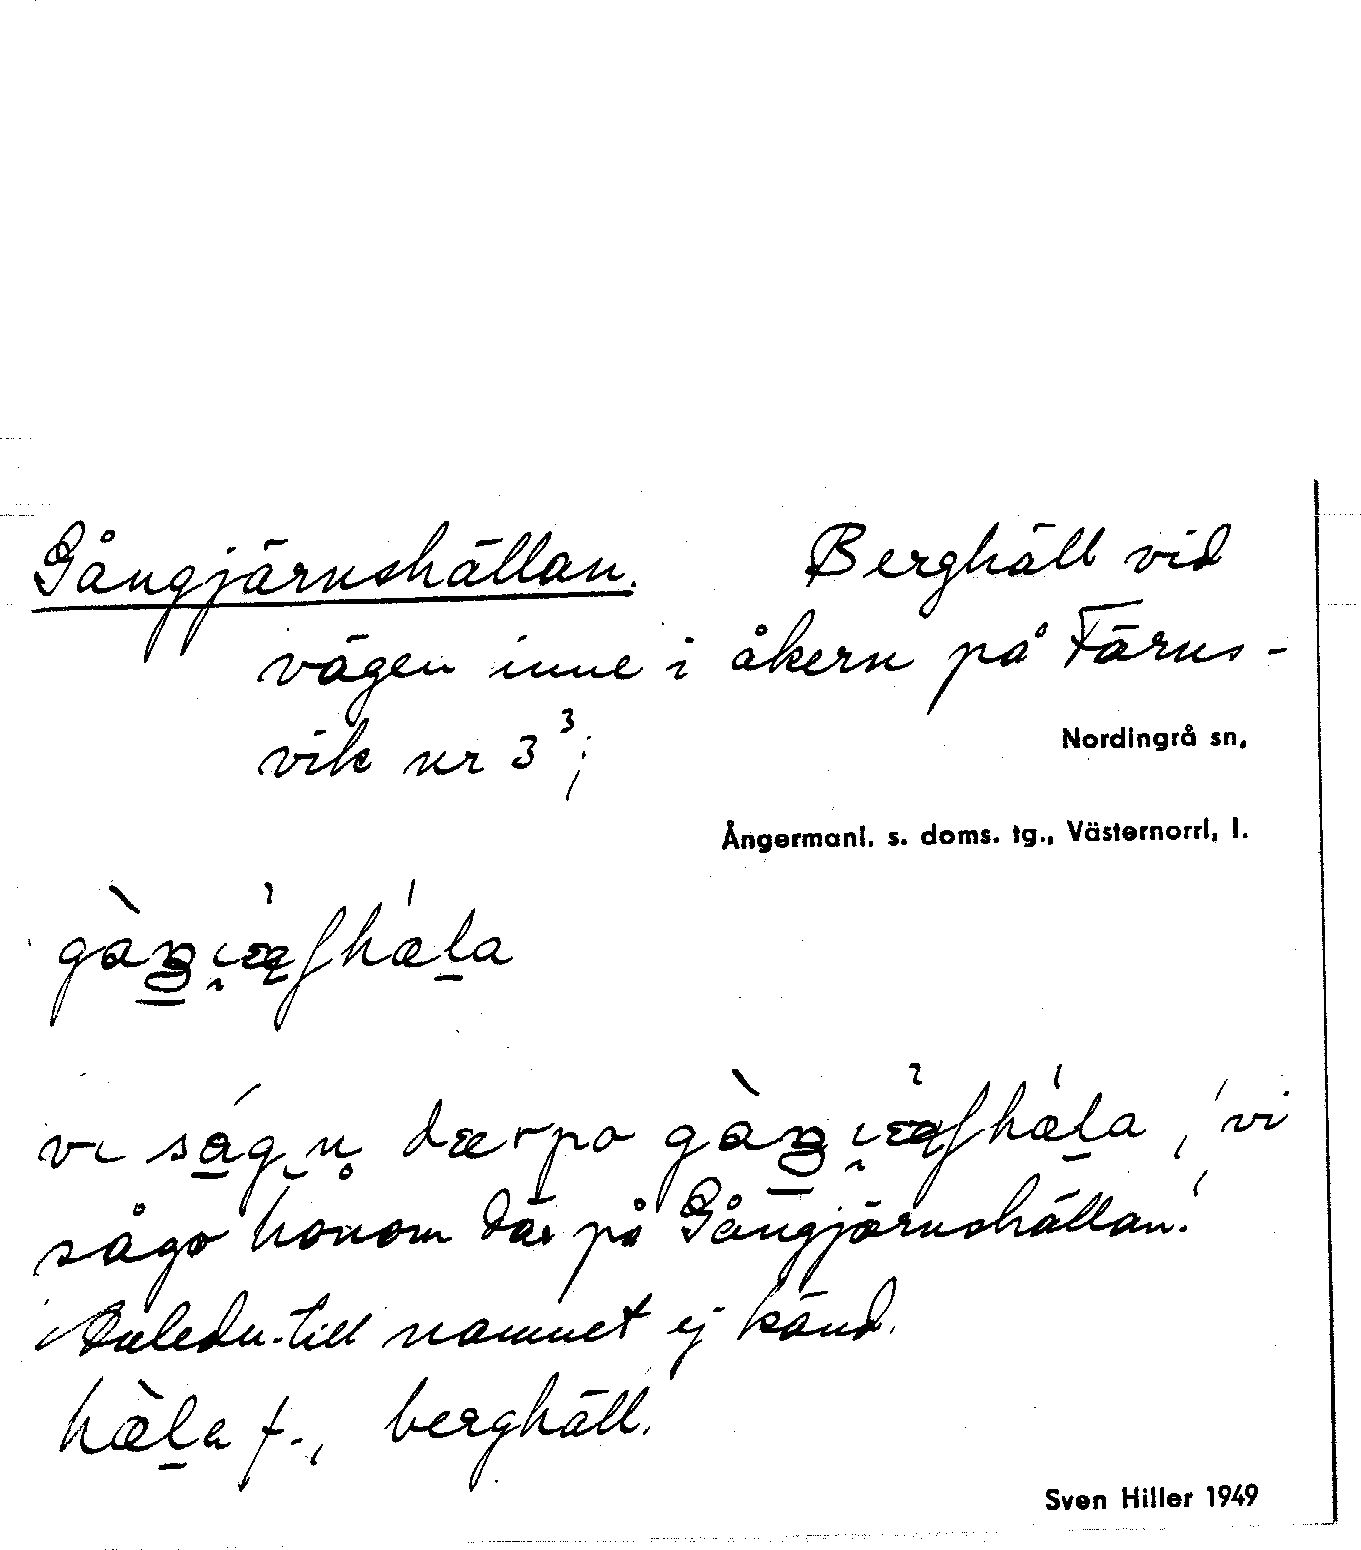 Gångjärnshällan. Berghäll vid
vägen inne i åkern på Färns-
vik nr 3³;
Nordingrå sn,
Ångermanl. s. doms. tg., Västernorrl. l.
gàŋi̯æ̀ʃhæ̍la
vi ságu̥n dær po gàŋi̯æ̀ʃhæ̍la, 'vi
sågo honom där på Gångjärnshällan.'
Anledn. till namnet ej känd.
hæ̀la f., berghäll.
Sven Hiller 1949